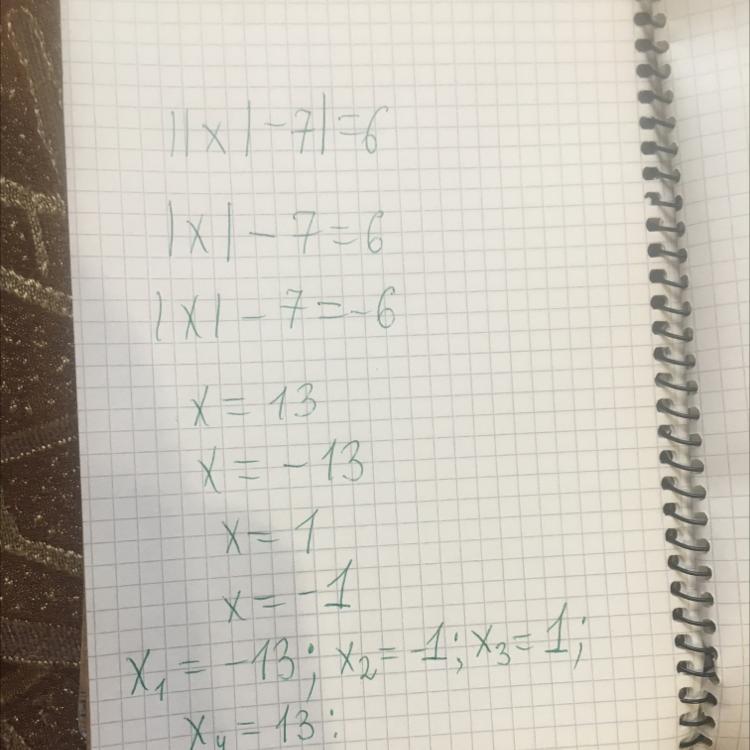 ||x|-7|=6
|x|-7=6
|x|-7=-6
x=13
x=-13
x=1
x=-1
x₁=-13; x₂=-1; x₃=1;
x₄=13: